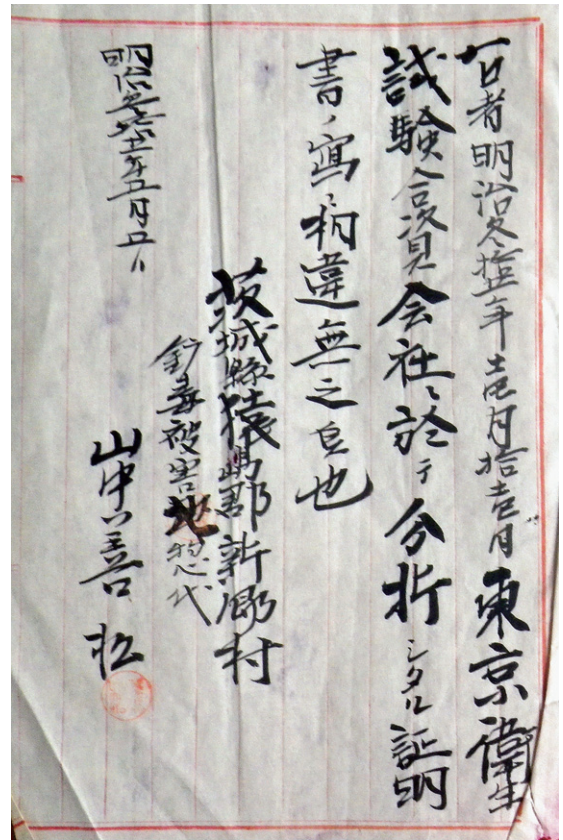 右者明治参拾五年壱月拾壱月東京衛生
試験合資会社ニ於テ分析シタル証明
書ノ寫ニ相違無之候也
茨城縣猿島郡新郷村
鉱毒被害地惣代
山中善松
明治参拾五年五月五日